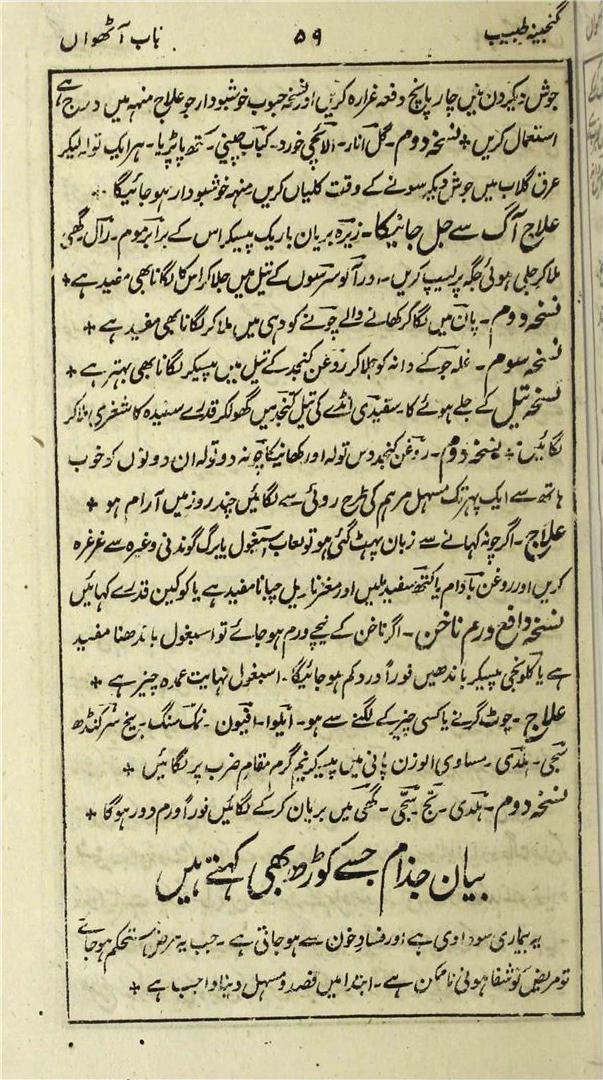 گنجینہ طبیب
۵۹
باب آٹھواں
جوش دیکر دن میں چار پانچ دفعہ غرارہ کریں اور نسخہ حبوب خوشبودار جو علاج منہہ میں درج ہے
استعمال کریں + نسخہ دوم۔ گل انار۔ الائچی خورد۔ کباب چینی۔ کتھ پاپڑیا۔ ہر ایک تولہ لیکر
عرق گلاب میں جوش دیکر سونے کے وقت کلیاں کریں منہہ خوشبودار ہو جائیگا
علاج آگ سے جل جانیکا۔ زیرہ بریان باریک پیسکر اس کے برابر موم۔ رال گھی
ملا کر جلی ہوئی جگہ پر لیپ کریں۔ اور آلو سرسوں کے تیل میں جلا کر اس کا لگانا بھی مفید ہے +
نسخہ دوم۔ پان میں لگا کر کھانے والے چونے کو دہی میں ملا کر لگانا بھی مفید ہے +
نسخہ سوم۔ غلہ جو کے دانہ کو جلا کر روغن کنجد کے تیل میں پیسکر لگانا بھی بہتر ہے +
نسخہ تیل کے جلے ہوئے کا۔ سفیدی انڈے کی تیل کنجد میں گھولکر قدرے سفیدہ کاشغری ملا کر
لگائیں + نسخہ دوم۔ روغن کنجد دس تولہ اور کھانیکا چونہ دو تولہ ان دونوں کو خوب
ہاتھ سے ایک پہر تک مسہل مرہم کی طرح روئی سے لگائیں چند روز میں آرام ہو +
علاج۔ اگر چونہ کہانے سے زبان پہٹ گئی ہو تو لعاب اسبغول یا برگ گوندنی وغیرہ سے غرغرہ
کریں اور روغن بادام یا کتھ سفید ملیں اور مغز ناریل چبانا مفید ہے یا کوکین قدرے کہائیں
نسخہ دافع ورم ناخن۔ اگر ناخن کے نیچے ورم ہو جائے تو اسبغول باندھنا مفید
ہے یا کلونجی پیسکر باندھیں فوراً درد کم ہو جائیگا۔ اسبغول نہایت عمدہ چیز ہے +
علاج۔ چوٹ گرنے یا کسی چیز کے لگنے سے ہو۔ ایلوا۔ افیون۔ نمک سنگ۔ بیخ سرکنڈھ
سجی۔ ہلدی۔ مساوی الوزن پانی میں پیسکر نیم گرم مقام ضرب پر لگائیں +
نسخہ دوم۔ ہلدی۔ سجی۔ گھی میں بریان کر کے لگائیں فوراً ورم دور ہوگا +
بیان جذام جسے کوڑھ بھی کہتے ہیں
یہ بیماری سوداوی ہے اور فساد خون سے ہو جاتی ہے۔ جب یہ مرض مستحکم ہو جائے
تو مریض کو شفا ہونی ناممکن ہے۔ ابتدا میں فصد و مسہل دینا واجب ہے +